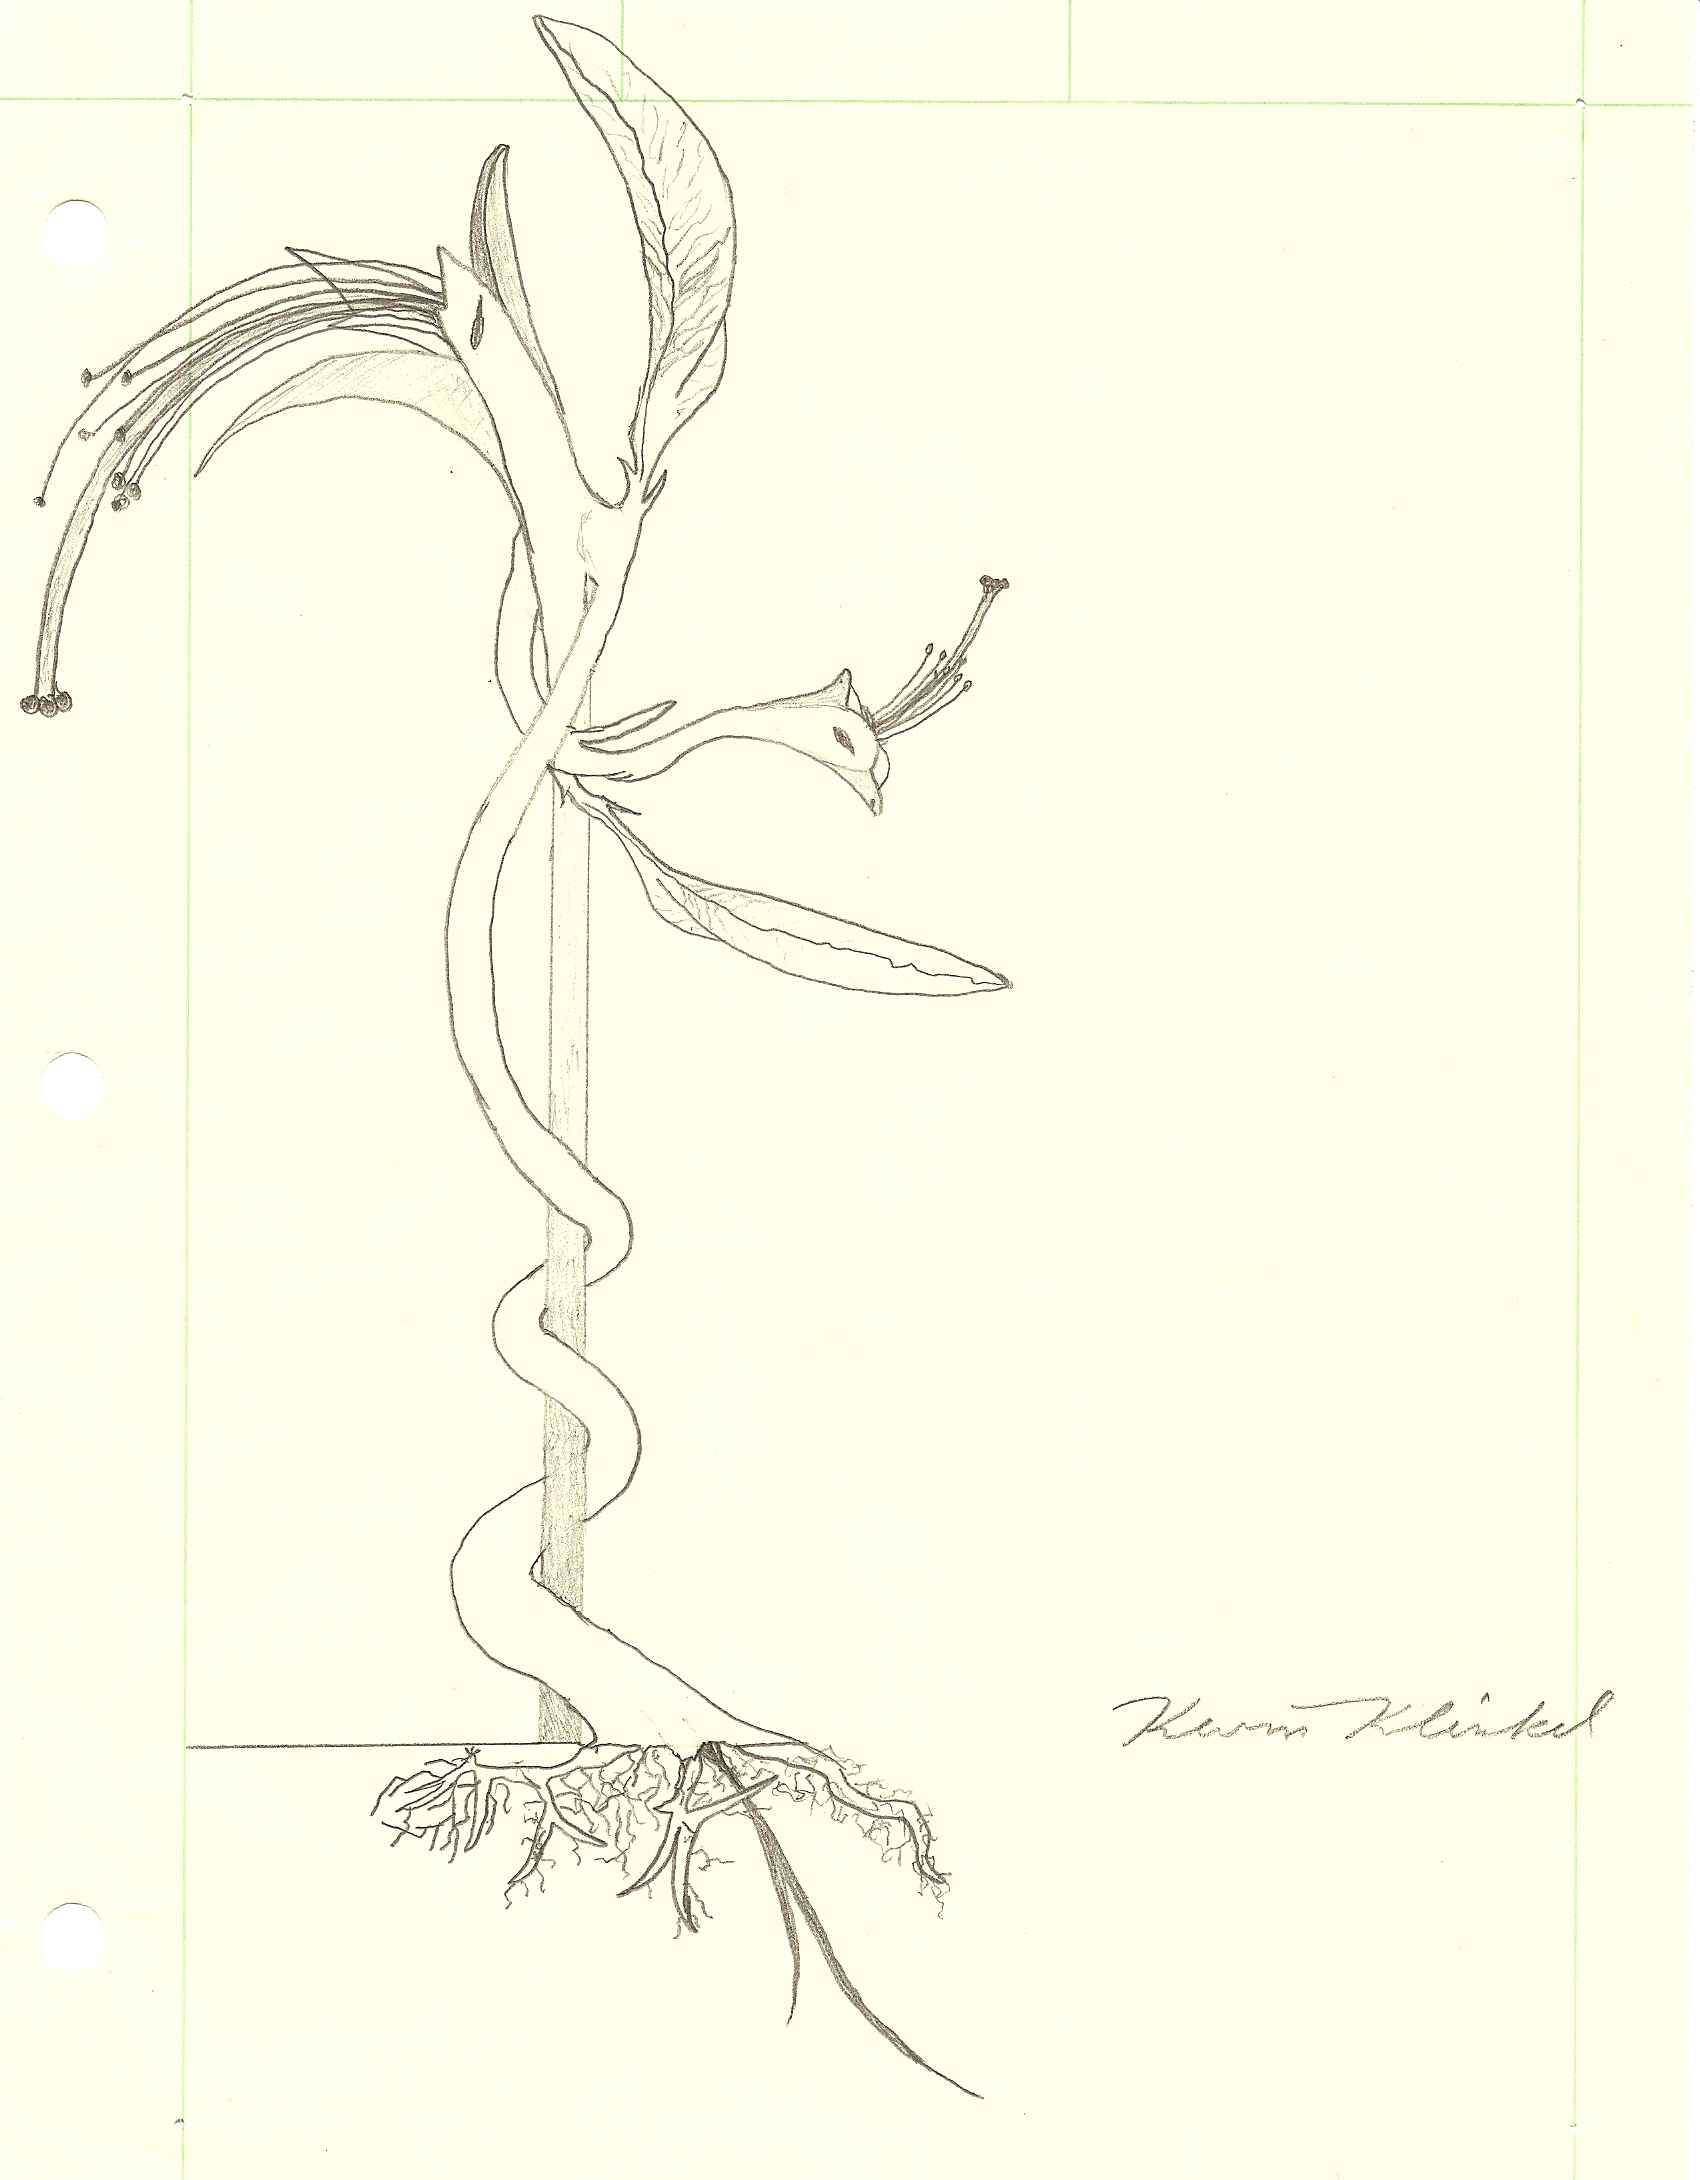 Kevin Klinkel